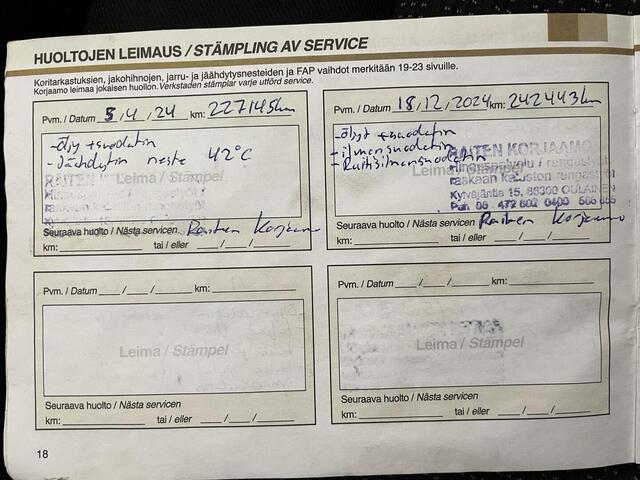 HUOLTOJEN LEIMAUS / STÄMPLING AV SERVICE
Koritarkastuksien, jakohihnojen, jarru- ja jäähdytysnesteiden ja FAP vaihdot merkitään 19-23 sivuille.
Korjaamo leimaa jokaisen huollon. Verkstaden stämplar varje utförd service.
Pvm. / Datum 5, 4, 24 km: 227145km
-öljy +suodatin
-Jäähdytin neste 42°C
RAITEN
Leima / Stämpel
Seuraava huolto / Nästa servicen Raiten Korjaamo
km: tai / eller / /
Pvm. / Datum 18, 12, 2024 km: 242443km
-öljyt +suodatin
-ilmansuodatin
-Raitisilmansuodatin
RAITEN KORJAAMO
Hinauspalvelu / rengastyöt
raskaan kaluston rengastyöt
Kytväjäntie 15, 86300 OULAINEN
Puh. 08 - 472 602 0400
Leima / Stämpel
Seuraava huolto / Nästa servicen Raiten Korjaamo
km: tai / eller / /
Pvm. / Datum / / km:
Leima / Stämpel
Seuraava huolto / Nästa servicen
km: tai / eller / /
Pvm. / Datum / / km:
Leima / Stämpel
Seuraava huolto / Nästa servicen
km: tai / eller / /
18